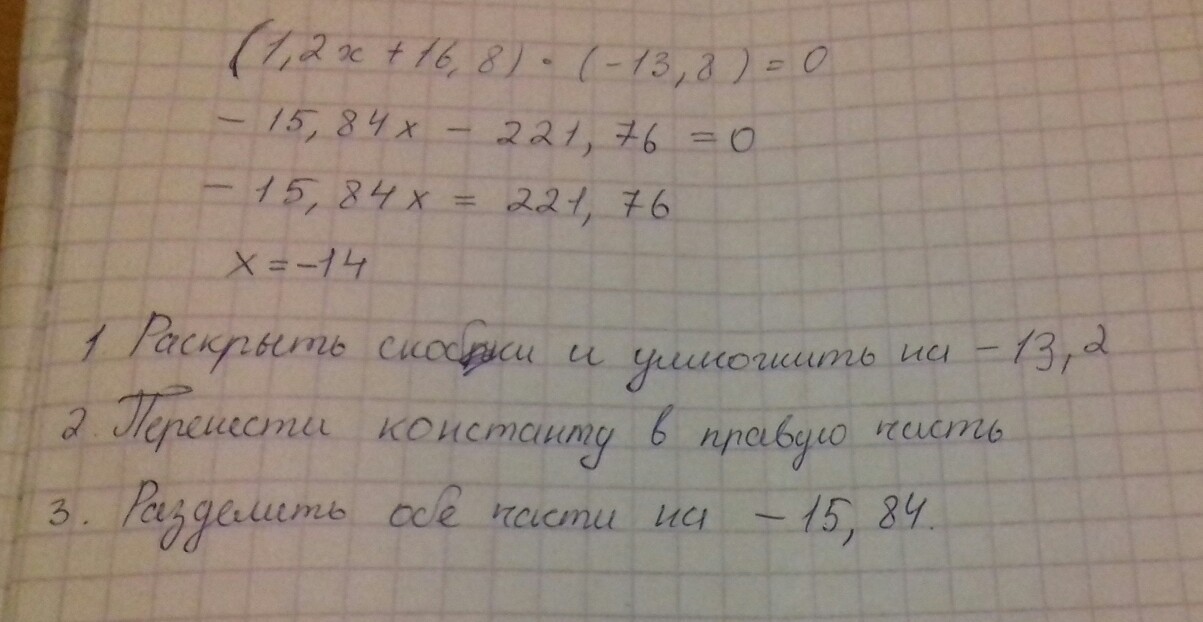 (1,2x + 16,8) · (-13,8) = 0
- 15,84x - 221,76 = 0
- 15,84x = 221,76
x = -14
1 Раскрыть скобки и умножить на - 13,2
2. Перенести константу в правую часть
3. Разделить обе части на - 15,84.